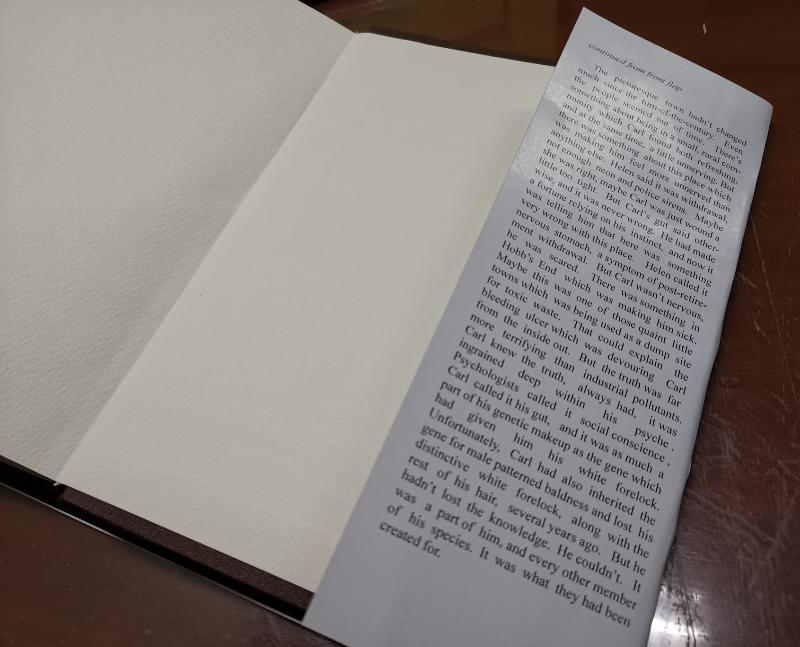 continued from front flap
The picturesque town hadn't changed
much since the turn-of-the-century. Even
the people seemed out of time. There's
something about being in a small, rural com-
munity which Carl found both refreshing,
and at the same time, a little unnerving. But
there was something about this place which
was making him feel more unnerved than
anything else. Helen said it was withdrawal,
not enough neon and police sirens. Maybe
she was right, maybe Carl was just wound a
little too tight. But Carl's gut said other-
wise, and it was never wrong. He had made
a fortune relying on his instinct, and now it
was telling him that here was something
very wrong with this place. Helen called it
nervous stomach, a symptom of post-retire-
ment withdrawal. But Carl wasn't nervous,
he was scared. There was something in
Hobb's End which was making him sick.
Maybe this was one of those quaint little
towns which was being used as a dump site
for toxic waste. That could explain the
bleeding ulcer which was devouring Carl
from the inside out. But the truth was far
more terrifying than industrial pollutants.
Carl knew the truth, always had, it was
ingrained deep within his psyche.
Psychologists called it social conscience,
Carl called it his gut, and it was as much a
part of his genetic makeup as the gene which
had given him his white forelock.
Unfortunately, Carl had also inherited the
gene for male patterned baldness and lost his
distinctive white forelock, along with the
rest of his hair, several years ago. But he
hadn't lost the knowledge. He couldn't. It
was a part of him, and every other member
of his species. It was what they had been
created for.